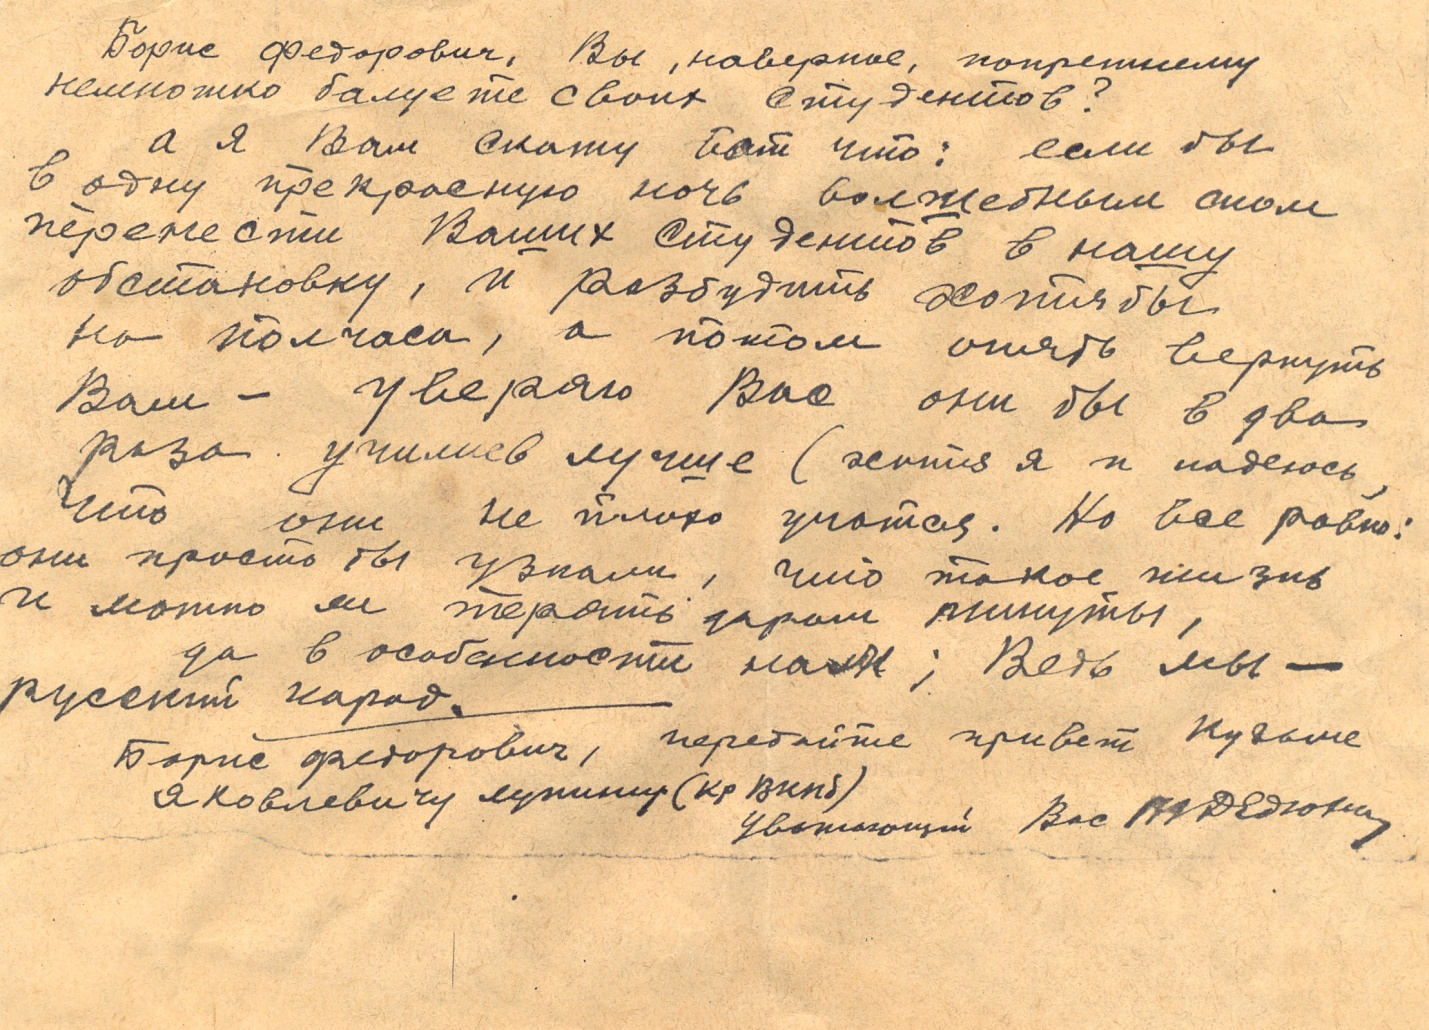 Борис Федорович, Вы, наверное, попрежнему
немножко балуете своих студентов?
а я Вам скажу вот что: если бы
в одну прекрасную ночь волшебным сном
перенести Ваших студентов в нашу
обстановку, и разбудить хотябы
на полчаса, а потом опять вернуть
Вам – уверяю Вас они бы в два
раза учились лучше (хотя я и надеюсь,
что они не плохо учатся. Но все равно:
они просто бы узнали, что такое жизнь
и можно ли терять даром минуты,
да в особенности нам; Ведь мы —
русский народ.
Борис Федорович, передайте привет Кузьме
Яковлевичу (кр ВКПб)
Уважающий Вас